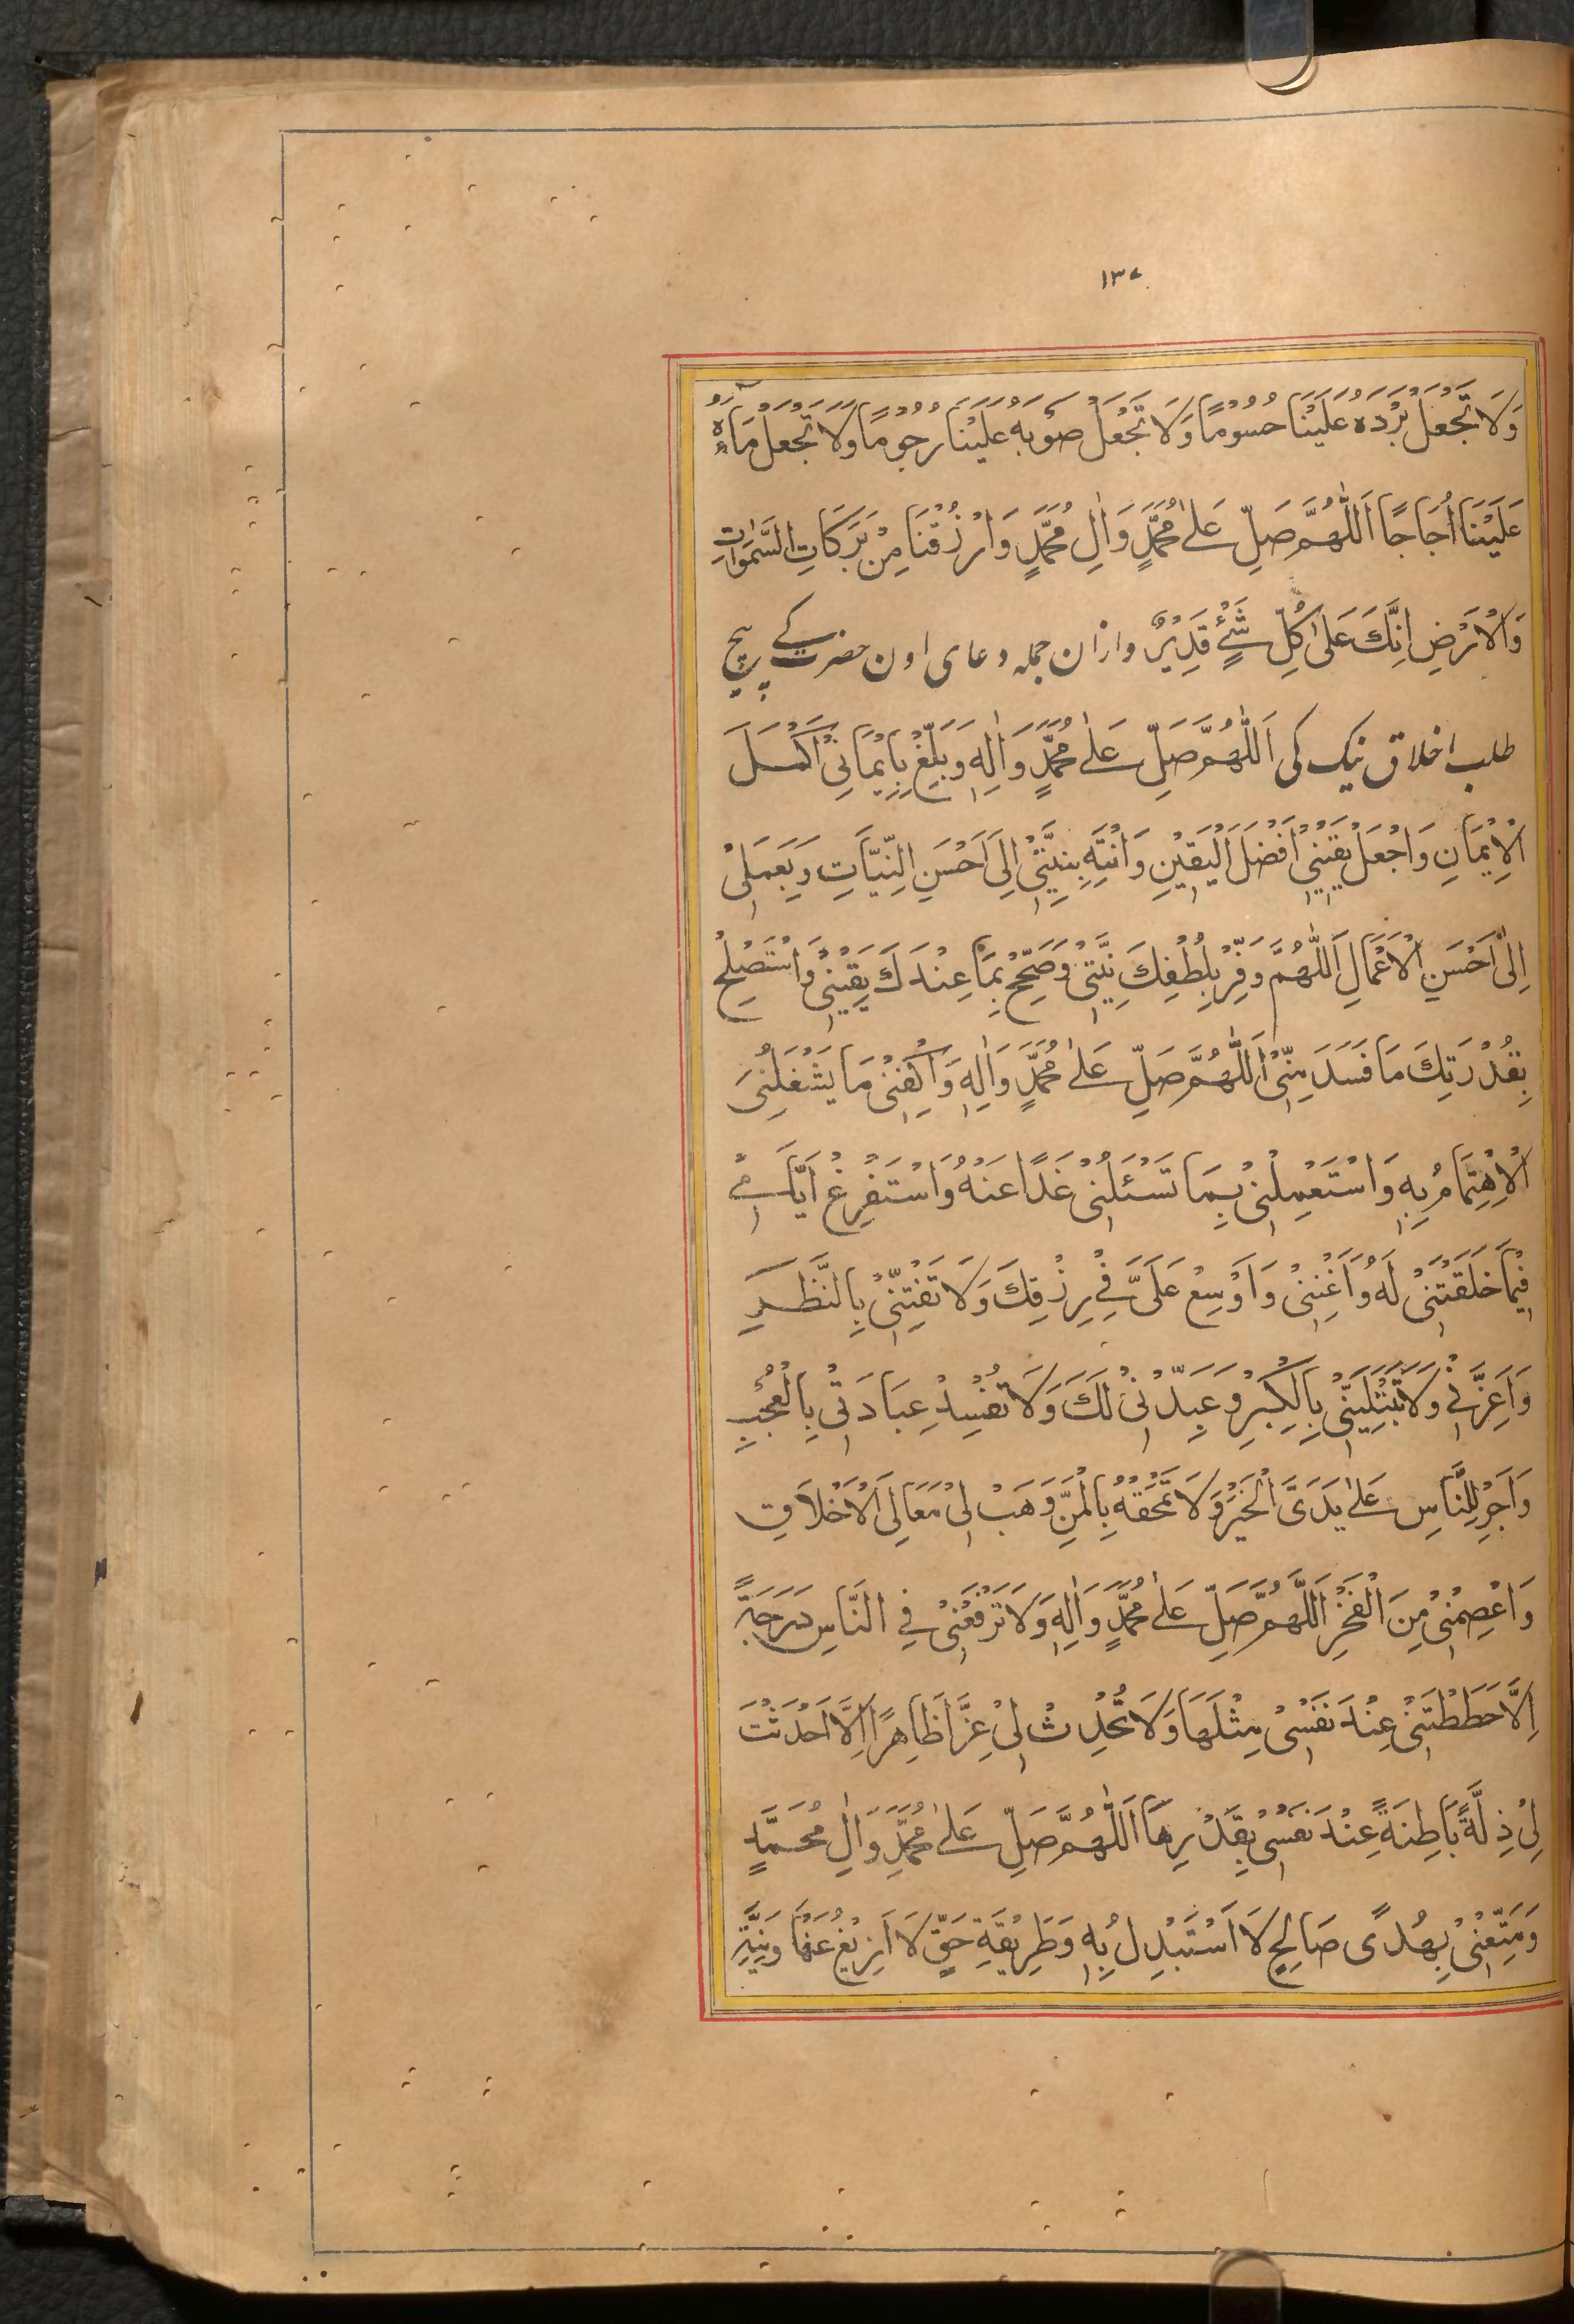 ١٣٧
وَلَا تَجْعَلْ بَرْدَهُ عَلَيْنَا حُسُومًا وَلَا تَجْعَلْ صَوْبَهُ عَلَيْنَا رُجُومًا وَلَا تَجْعَلْ مَاءَهُ
عَلَيْنَا اُجَاجًا اَللّٰهُمَّ صَلِّ عَلٰى مُحَمَّدٍ وَاٰلِ مُحَمَّدٍ وَارْزُقْنَا مِنْ بَرَكَاتِ السَّمٰوَاتِ
وَالْاَرْضِ اِنَّكَ عَلٰى كُلِّ شَيْءٍ قَدِيْرٌ وازان جمله دعاى اون حضرت کے بیچ
طلب اخلاق نیک کی اَللّٰهُمَّ صَلِّ عَلٰى مُحَمَّدٍ وَاٰلِهٖ وَبَلِّغْ بِاِيْمَانِيْ اَكْمَلَ
الْاِيْمَانِ وَاجْعَلْ يَقِيْنِيْ اَفْضَلَ الْيَقِيْنِ وَانْتَهِ بِنِيَّتِيْ اِلٰى اَحْسَنِ النِّيَّاتِ وَبِعَمَلِيْ
اِلٰى اَحْسَنِ الْاَعْمَالِ اَللّٰهُمَّ وَفِّرْ بِلُطْفِكَ نِيَّتِيْ وَصَحِّحْ بِمَا عِنْدَكَ يَقِيْنِيْ وَاسْتَصْلِحْ
بِقُدْرَتِكَ مَا فَسَدَ مِنِّيْ اَللّٰهُمَّ صَلِّ عَلٰى مُحَمَّدٍ وَاٰلِهٖ وَاكْفِنِيْ مَا يَشْغَلُنِيَ
الْاِهْتِمَامُ بِهٖ وَاسْتَعْمِلْنِيْ بِمَا تَسْئَلُنِيْ غَدًا عَنْهُ وَاسْتَفْرِغْ اَيَّامِيْ
فِيْمَا خَلَقْتَنِيْ لَهُ وَاَغْنِنِيْ وَاَوْسِعْ عَلَيَّ فِيْ رِزْقِكَ وَلَا تَفْتِنِّيْ بِالنَّظَرِ
وَاَعِزَّنِيْ وَلَا تَبْتَلِيَنِّيْ بِالْكِبْرِ وَعَبِّدْنِيْ لَكَ وَلَا تُفْسِدْ عِبَادَتِيْ بِالْعُجْبِ
وَاَجْرِ لِلنَّاسِ عَلٰى يَدَيَّ الْخَيْرَ وَلَا تَمْحَقْهُ بِالْمَنِّ وَهَبْ لِيْ مَعَالِيَ الْاَخْلَاقِ
وَاعْصِمْنِيْ مِنَ الْفَخْرِ اَللّٰهُمَّ صَلِّ عَلٰى مُحَمَّدٍ وَاٰلِهٖ وَلَا تَرْفَعْنِيْ فِي النَّاسِ دَرَجَةً
اِلَّا حَطَطْتَنِيْ عِنْدَ نَفْسِيْ مِثْلَهَا وَلَا تُحْدِثْ لِيْ عِزًّا ظَاهِرًا اِلَّا اَحْدَثْتَ
لِيْ ذِلَّةً بَاطِنَةً عِنْدَ نَفْسِيْ بِقَدْرِهَا اَللّٰهُمَّ صَلِّ عَلٰى مُحَمَّدٍ وَاٰلِ مُحَمَّدٍ
وَمَتِّعْنِيْ بِهُدًى صَالِحٍ لَا اَسْتَبْدِلُ بِهٖ وَطَرِيْقَةِ حَقٍّ لَا اَزِيْغُ عَنْهَا وَنِيَّةِ